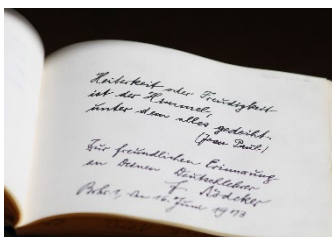 Heiterkeit oder Freudigkeit
ist der Himmel,
unter dem alles gedeiht.
(Jean Paul.)
Zur freundlichen Erinnerung
an Deinen Deutschlehrer
F.
den 16. Juni 1973